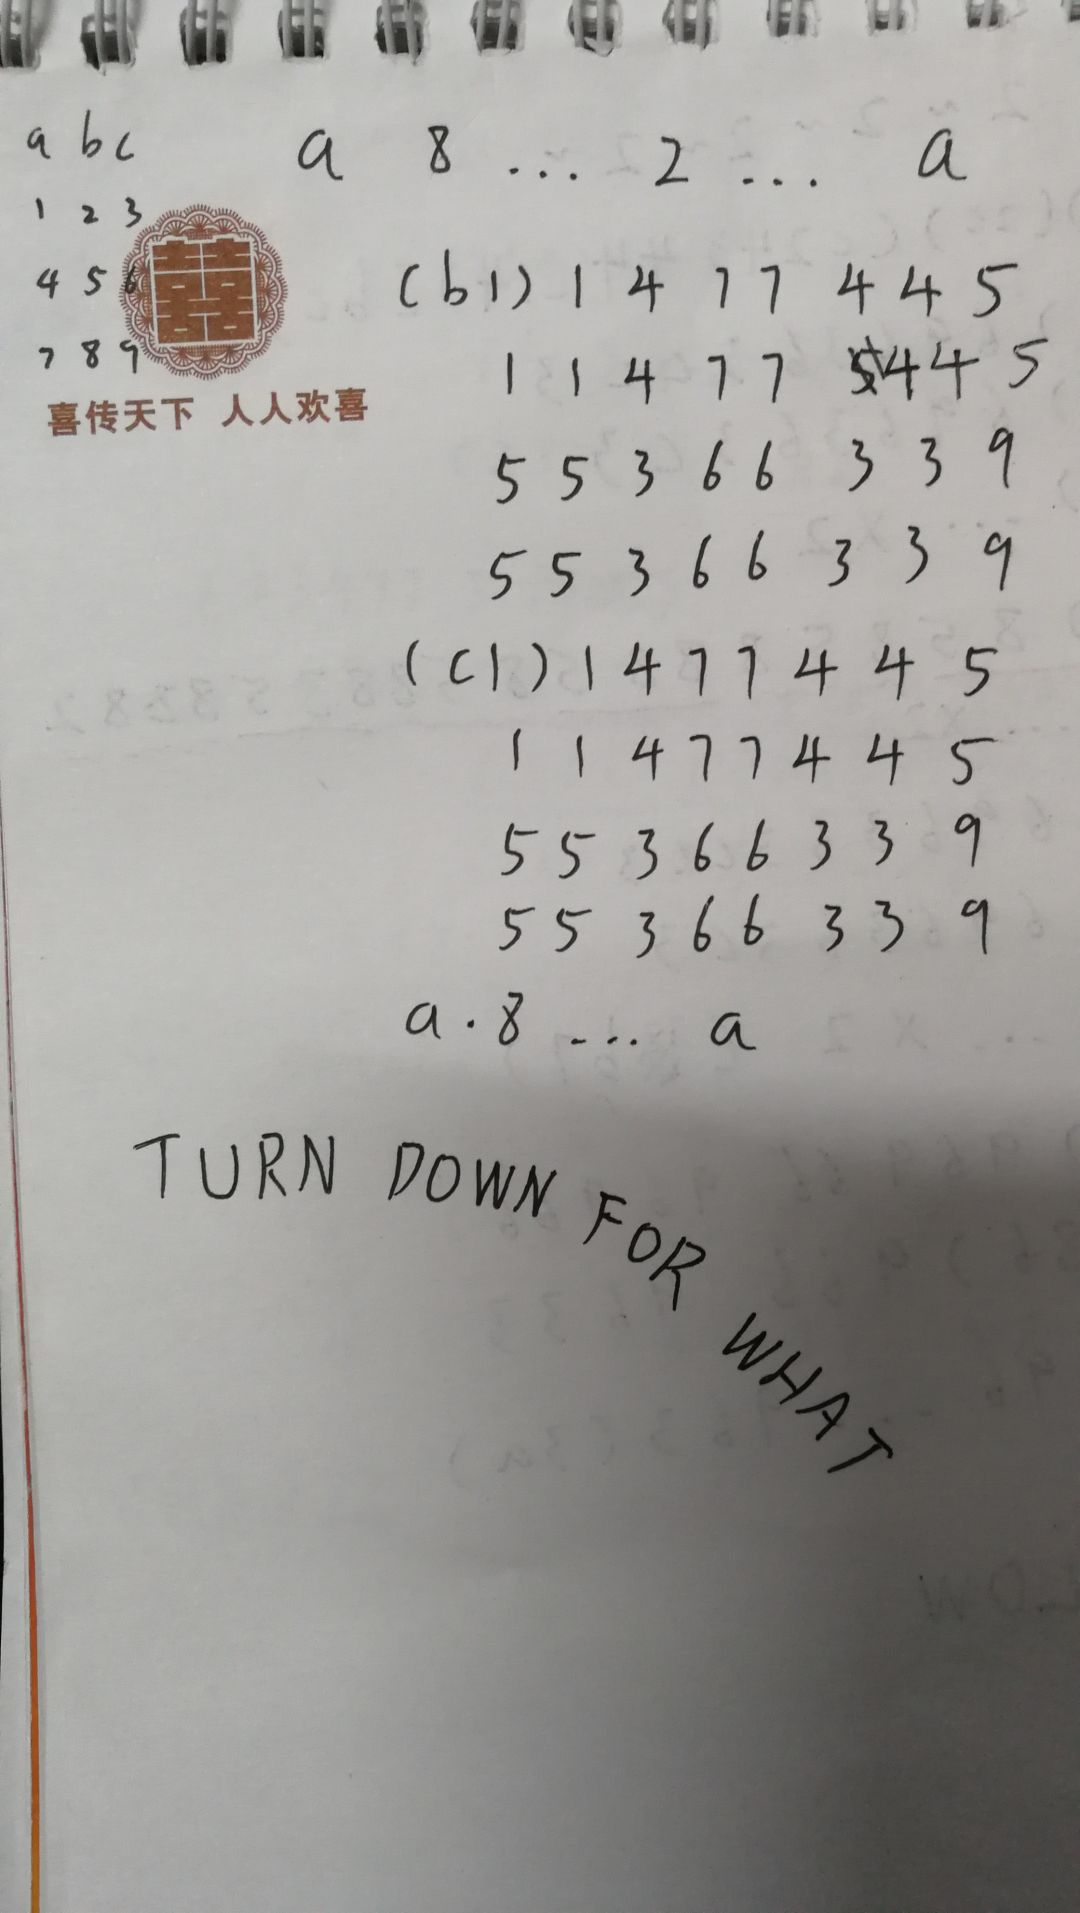 a b c
1 2 3
4 5 6
7 8 9
喜传天下 人人欢喜
a 8 ... 2 ... a
(b1) 1 4 7 7 4 4 5
1 1 4 7 7 4 4 5
5 5 3 6 6 3 3 9
5 5 3 6 6 3 3 9
(c1) 1 4 7 7 4 4 5
1 1 4 7 7 4 4 5
5 5 3 6 6 3 3 9
5 5 3 6 6 3 3 9
a . 8 ... a
TURN DOWN FOR WHAT